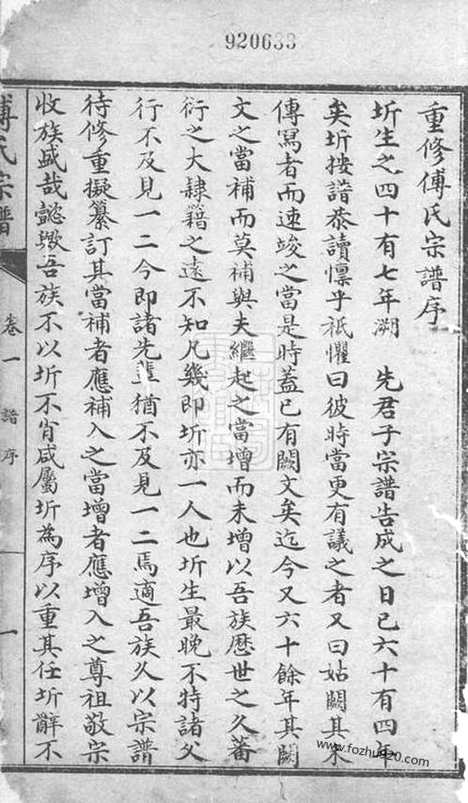 920633
重修傅氏宗譜序
圻生之四十有七年溯　先君子宗譜告成之日已六十有四年
矣圻按譜恭讀懍乎祇懼曰彼時當更有議之者又曰姑闕其未
傳寫者而速竣之當是時蓋已有闕文矣迄今又六十餘年其闕
文之當補而莫補與夫繼起之當增而未增以吾族歷世之久蕃
衍之大肄籍之遠不知凡幾即圻亦一人也圻生最晚不特諸父
行不及見一二今即諸先輩猶不及見一二焉適吾族久以宗譜
待修重擬纂訂其當補者應補入之當增者應增入之尊祖敬宗
收族盛哉懿歟吾族不以圻不肖咸屬圻為序以重其任圻辭不
傅氏宗譜
卷一
譜序
一
www.fozhu920.com